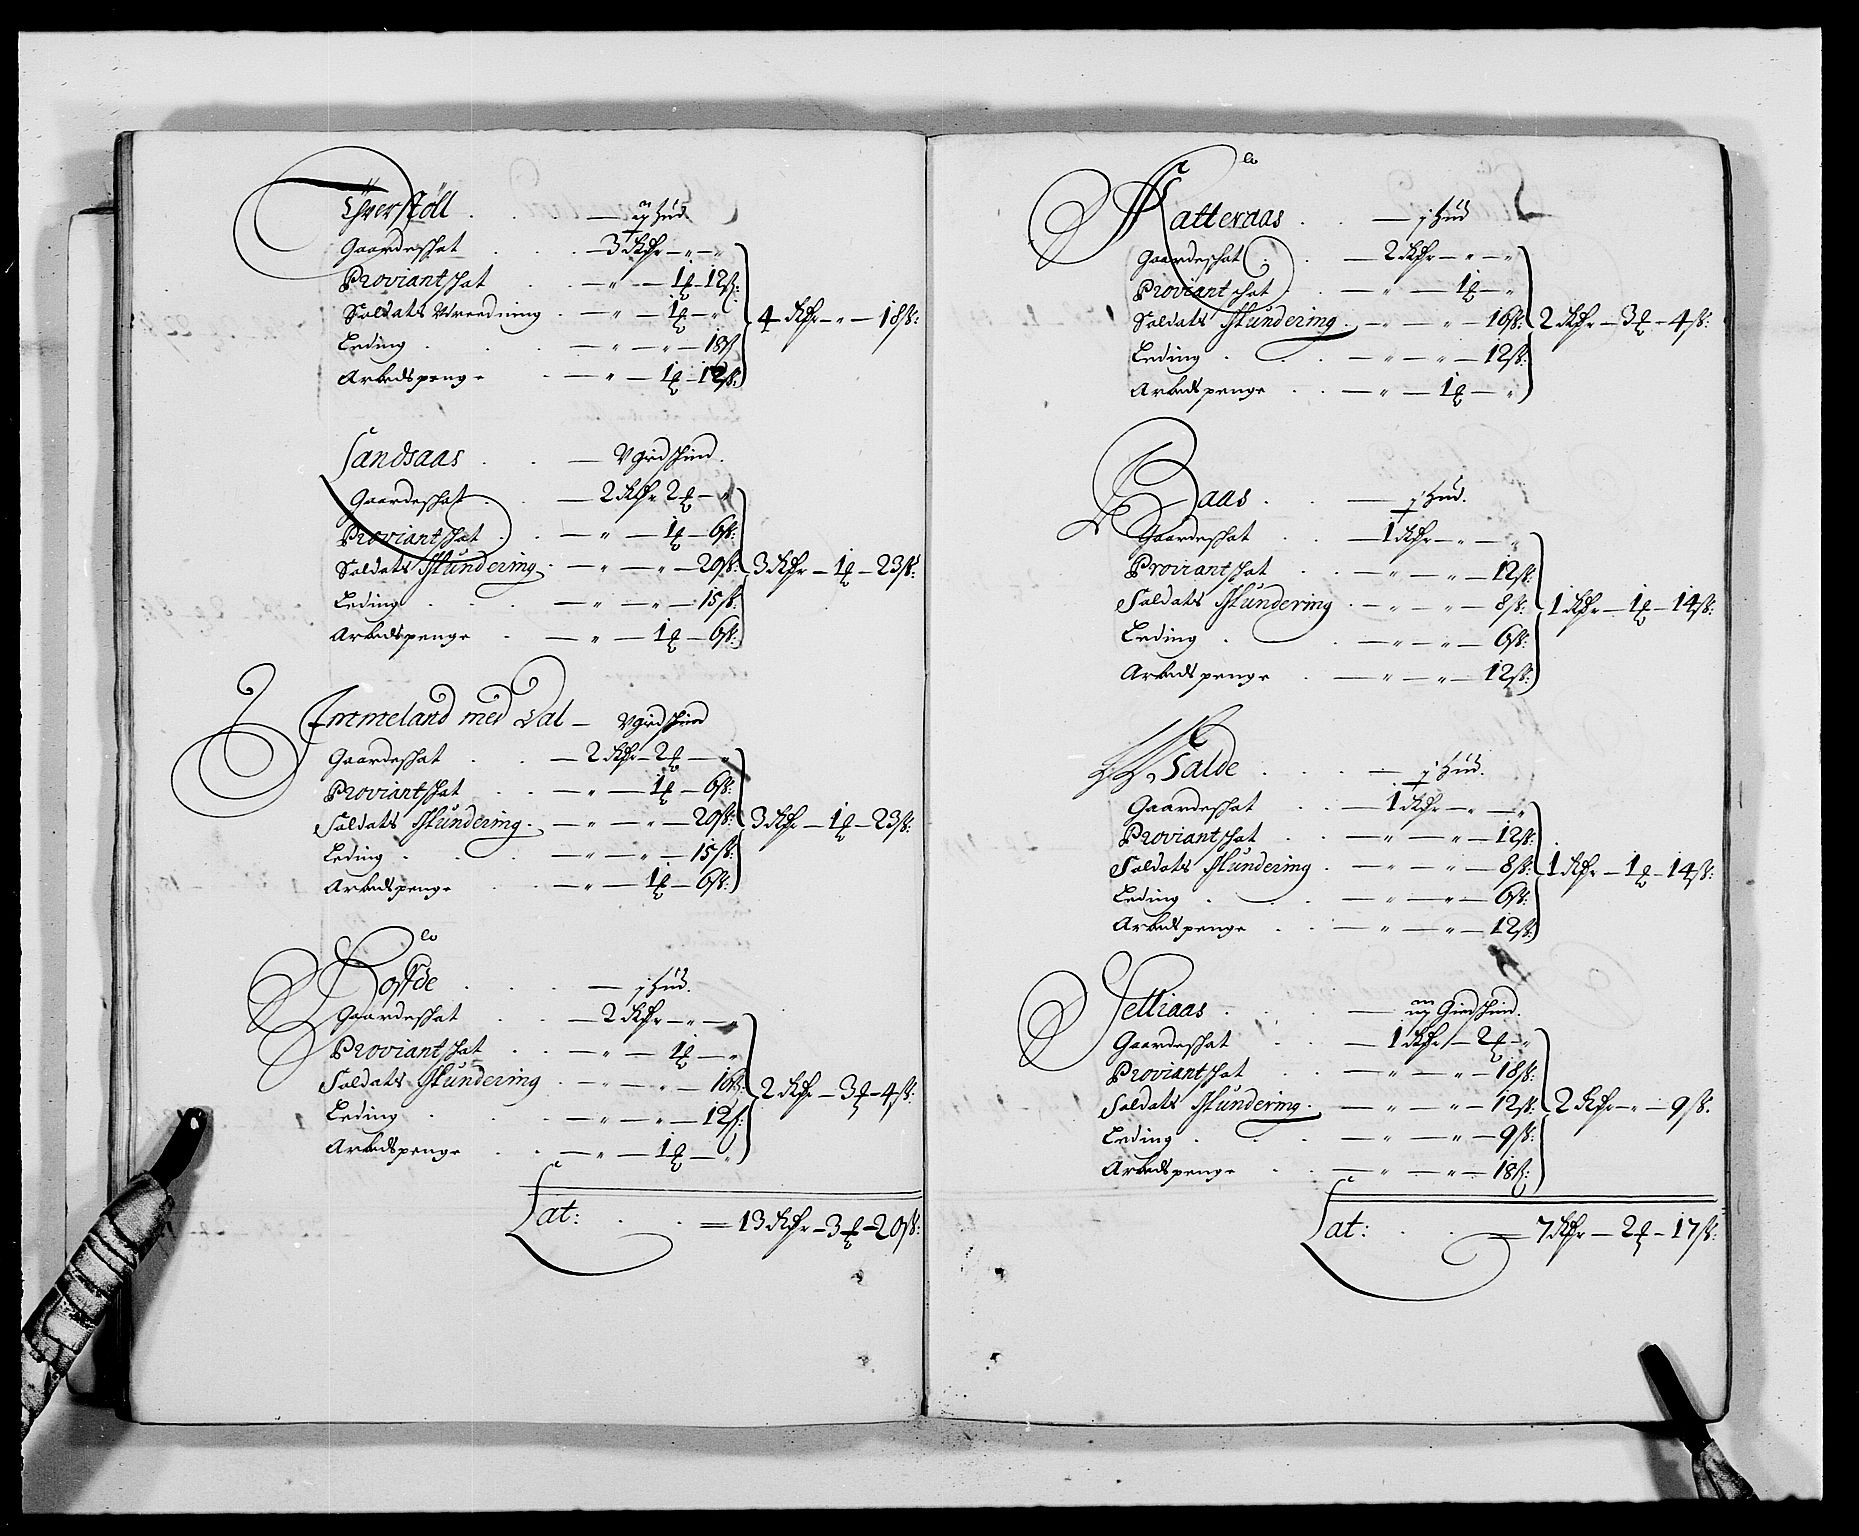 Thverstöll . . — Hud
Gaardeskat . . . — 3 Rdr — " — "
Proviantskat . . — " — 1 ℔ — 12 ß:
Soldats Vdreedning . — " — 1 ℔ — "
Leding . . . — " — " — 18 ß
Arbedspenge . — " — 1 ℔ — 12 ß:
4 Rdr — " — 18 ß:
Sandsaas . . — V Gedskind.
Gaardeskat . . — 2 Rdr 2 ℔ — "
Proviantskat . . — " — 1 ℔ — 6 ß:
Soldats Skundering . — " — " — 20 ß:
Leding . . . — " — " — 15 ß:
Arbedspenge . — " — 1 ℔ — 6 ß:
3 Rdr — 1 ℔ — 23 ß:
Immeland med Dal — V Gedskind
Gaardeskat . . — 2 Rdr — 2 ℔ — "
Proviantskat . . — " — 1 ℔ — 6 ß:
Soldats Skundering . — " — " — 20 ß:
Leding . . . — " — " — 15 ß:
Arbedspenge . . — " — 1 ℔ — 6 ß:
3 Rdr — 1 ℔ — 23 ß:
. . . — j Hud.
Gaardeskat . . — 2 Rdr — " — "
Proviantskat . . — " — 1 ℔ — "
Soldats Skundering . — " — " — 16 ß:
Leding . . . — " — " — 12 ß:
Arbedspenge . . — " — 1 ℔ — "
2 Rdr — 3 ℔ — 4 ß:
Lat: . . = 13 Rdr — 3 ℔ — 20 ß:
Katteraas . . — j Hud
Gaardeskat . . — 2 Rdr — " — "
Proviantskat . . — " — 1 ℔ — "
Soldats Skundering . — " — " — 16 ß:
Leding . . . — " — " — 12 ß:
Arbedspenge . . — " — 1 ℔ — "
2 Rdr — 3 ℔ — 4 ß:
Baas . . — j Hud.
Gaardeskat . . — 1 Rdr — " — "
Proviantskat . . — " — " — 12 ß:
Soldats Skundering . — " — " — 8 ß:
Leding . . . — " — " — 6 ß:
Arbedspenge . — " — " — 12 ß:
1 Rdr — 1 ℔ — 14 ß:
Salde . . . — j Hud.
Gaardeskat . . — 1 Rdr — " — "
Proviantskat . . — " — " — 12 ß:
Soldats Skundering . — " — " — 8 ß:
Leding . . . — " — " — 6 ß:
Arbedspenge . . — " — " — 12 ß:
1 Rdr — 1 ℔ — 14 ß:
Jettiaas . . . — Giedskind.
Gaardeskat . . — 1 Rdr — 2 ℔ — "
Proviantskat . . — " — " — 18 ß:
Soldats Skundering . — " — " — 12 ß:
Leding . . . — " — " — 9 ß:
Arbedspenge . . — " — " — 18 ß:
2 Rdr — " — 9 ß.
Lat: . . = 7 Rdr — 2 ℔ — 17 ß: